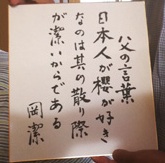 父の言葉
日本人が櫻が好き
なのは其の散り際
が潔いからである
岡潔